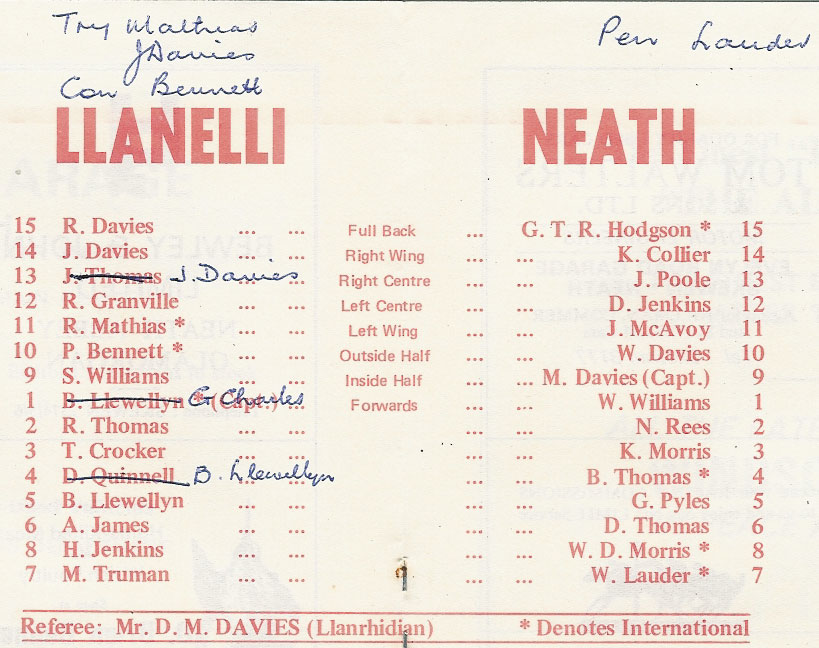 Try Mathias
J Davies
Con Bennett
Pen Lauder
LLANELLI NEATH
15 R. Davies ... ... Full Back ... G. T. R. Hodgson * 15
14 J. Davies ... ... Right Wing ... ... K. Collier 14
13 J. Thomas J. Davies ... Right Centre ... ... J. Poole 13
12 R. Granville ... ... Left Centre ... ... D. Jenkins 12
11 R. Mathias * ... ... Left Wing ... ... J. McAvoy 11
10 P. Bennett * ... ... Outside Half ... ... W. Davies 10
9 S. Williams ... ... Inside Half ... ... M. Davies (Capt.) 9
1 B. Llewellyn * (Capt.) G Charles ... Forwards ... ... W. Williams 1
2 R. Thomas ... ... ... ... N. Rees 2
3 T. Crocker ... ... ... ... K. Morris 3
4 D. Quinnell B. Llewellyn ... ... ... ... B. Thomas * 4
5 B. Llewellyn ... ... ... ... G. Pyles 5
6 A. James ... ... ... ... D. Thomas 6
8 H. Jenkins ... ... ... ... W. D. Morris * 8
7 M. Truman ... ... ... ... W. Lauder * 7
Referee: Mr. D. M. DAVIES (Llanrhidian) * Denotes International